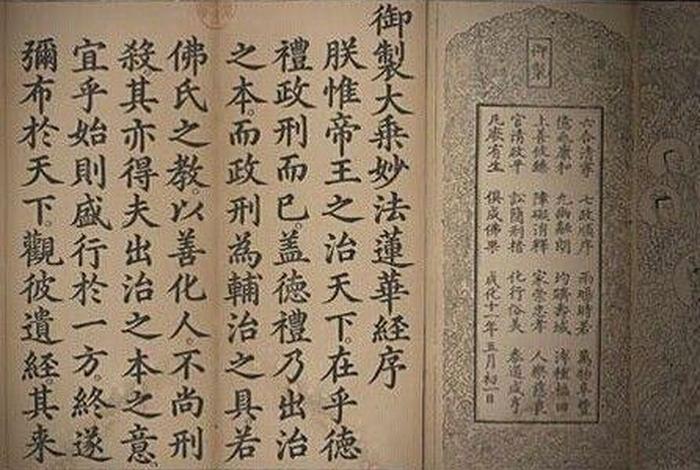 御製
六合清寧 七政順序 雨暘時若 萬物阜豐
億兆康和 九幽融朗 均躋壽域 溥種福田
上善攸臻 障礙消釋 家崇忠孝 人樂慈良
官清政平 訟簡刑措 化行俗美 泰道咸亨
凡厥有生 俱成佛果 成化十一年五月初一日
御製大乗妙法蓮華經序
朕惟帝王之治天下。在乎徳
禮政刑而已。盖徳禮乃出治
之本。而政刑為輔治之具若
佛氏之教。以善化人。不尚刑
殺其亦得夫出治之本之意。
宜乎始則盛行於一方。終遂
彌布於天下。觀彼遺經。其来